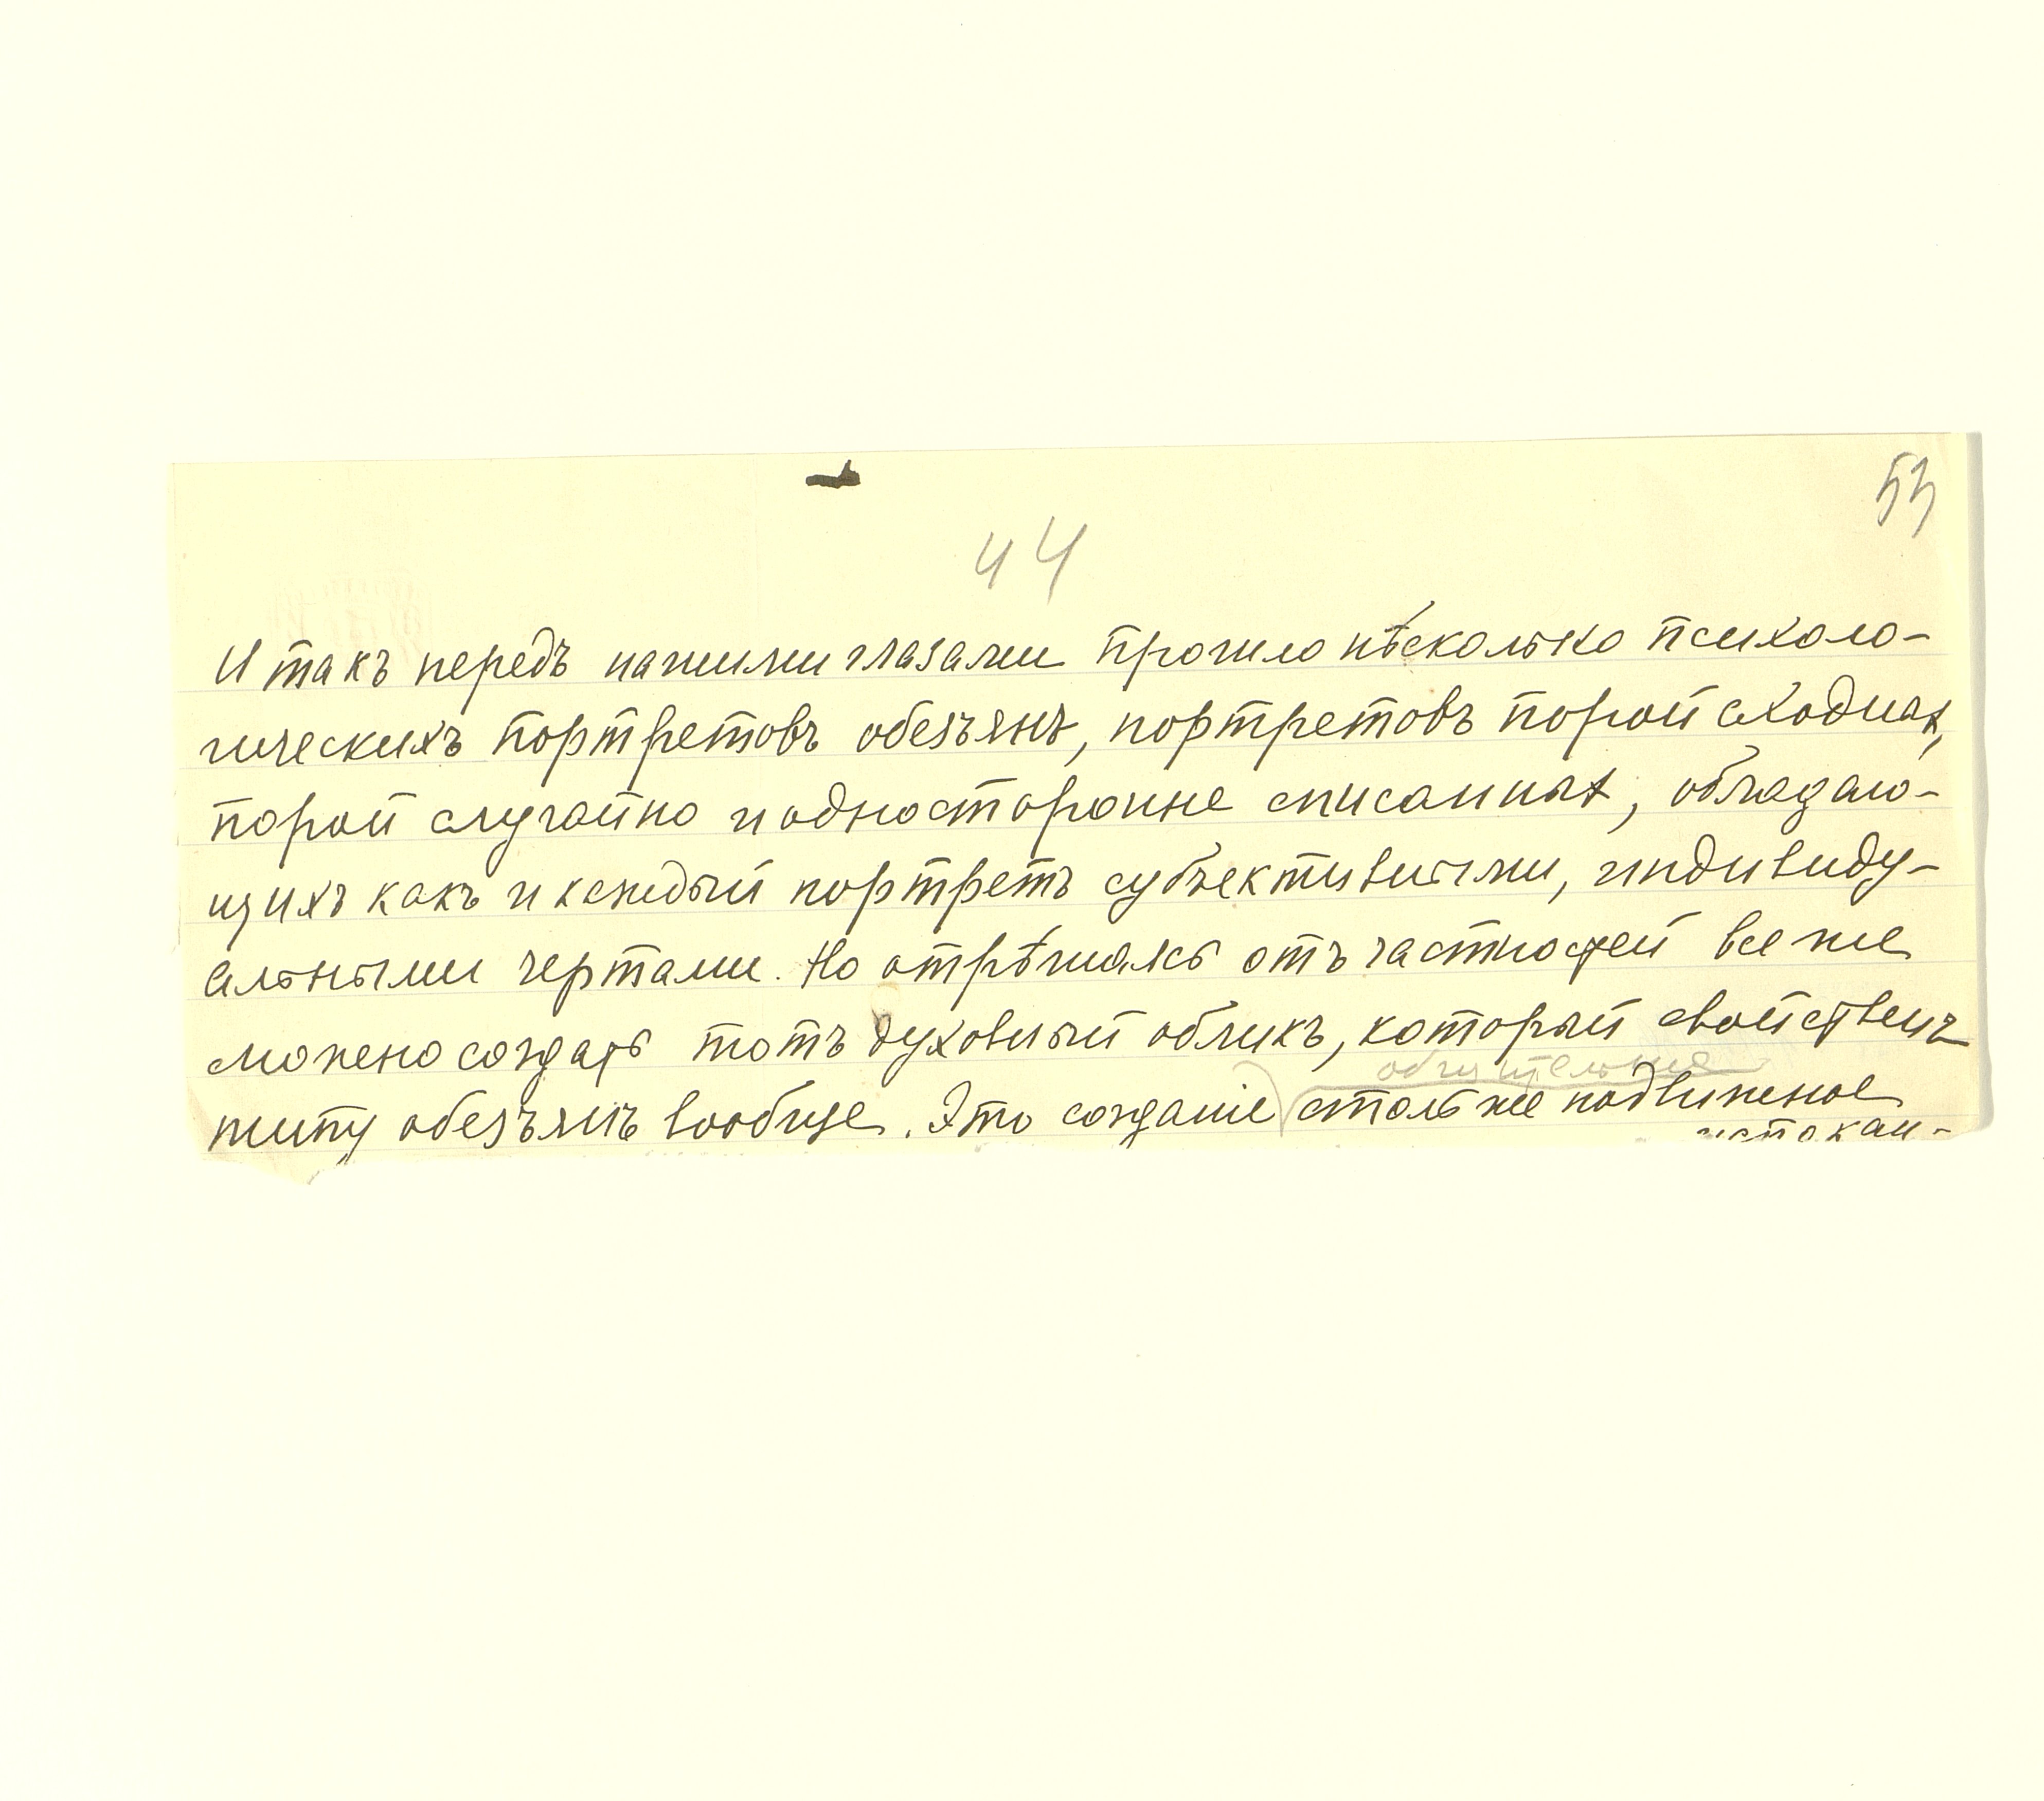 53
44
И такъ передъ нашими глазами прошло нѣсколько психоло-
гическихъ портретовъ обезъянъ, портретовъ порой сходныхъ,
порой случайно и односторонне списанныхъ, обладаю-
щихъ какъ и каждый портретъ субъективными, индивиду-
альными чертами. Но отрѣшаясь отъ частностей все же
можно создать тотъ духовный обликъ, который свойственъ
типу обезъянъ вообще. Это создание столь же подвижное